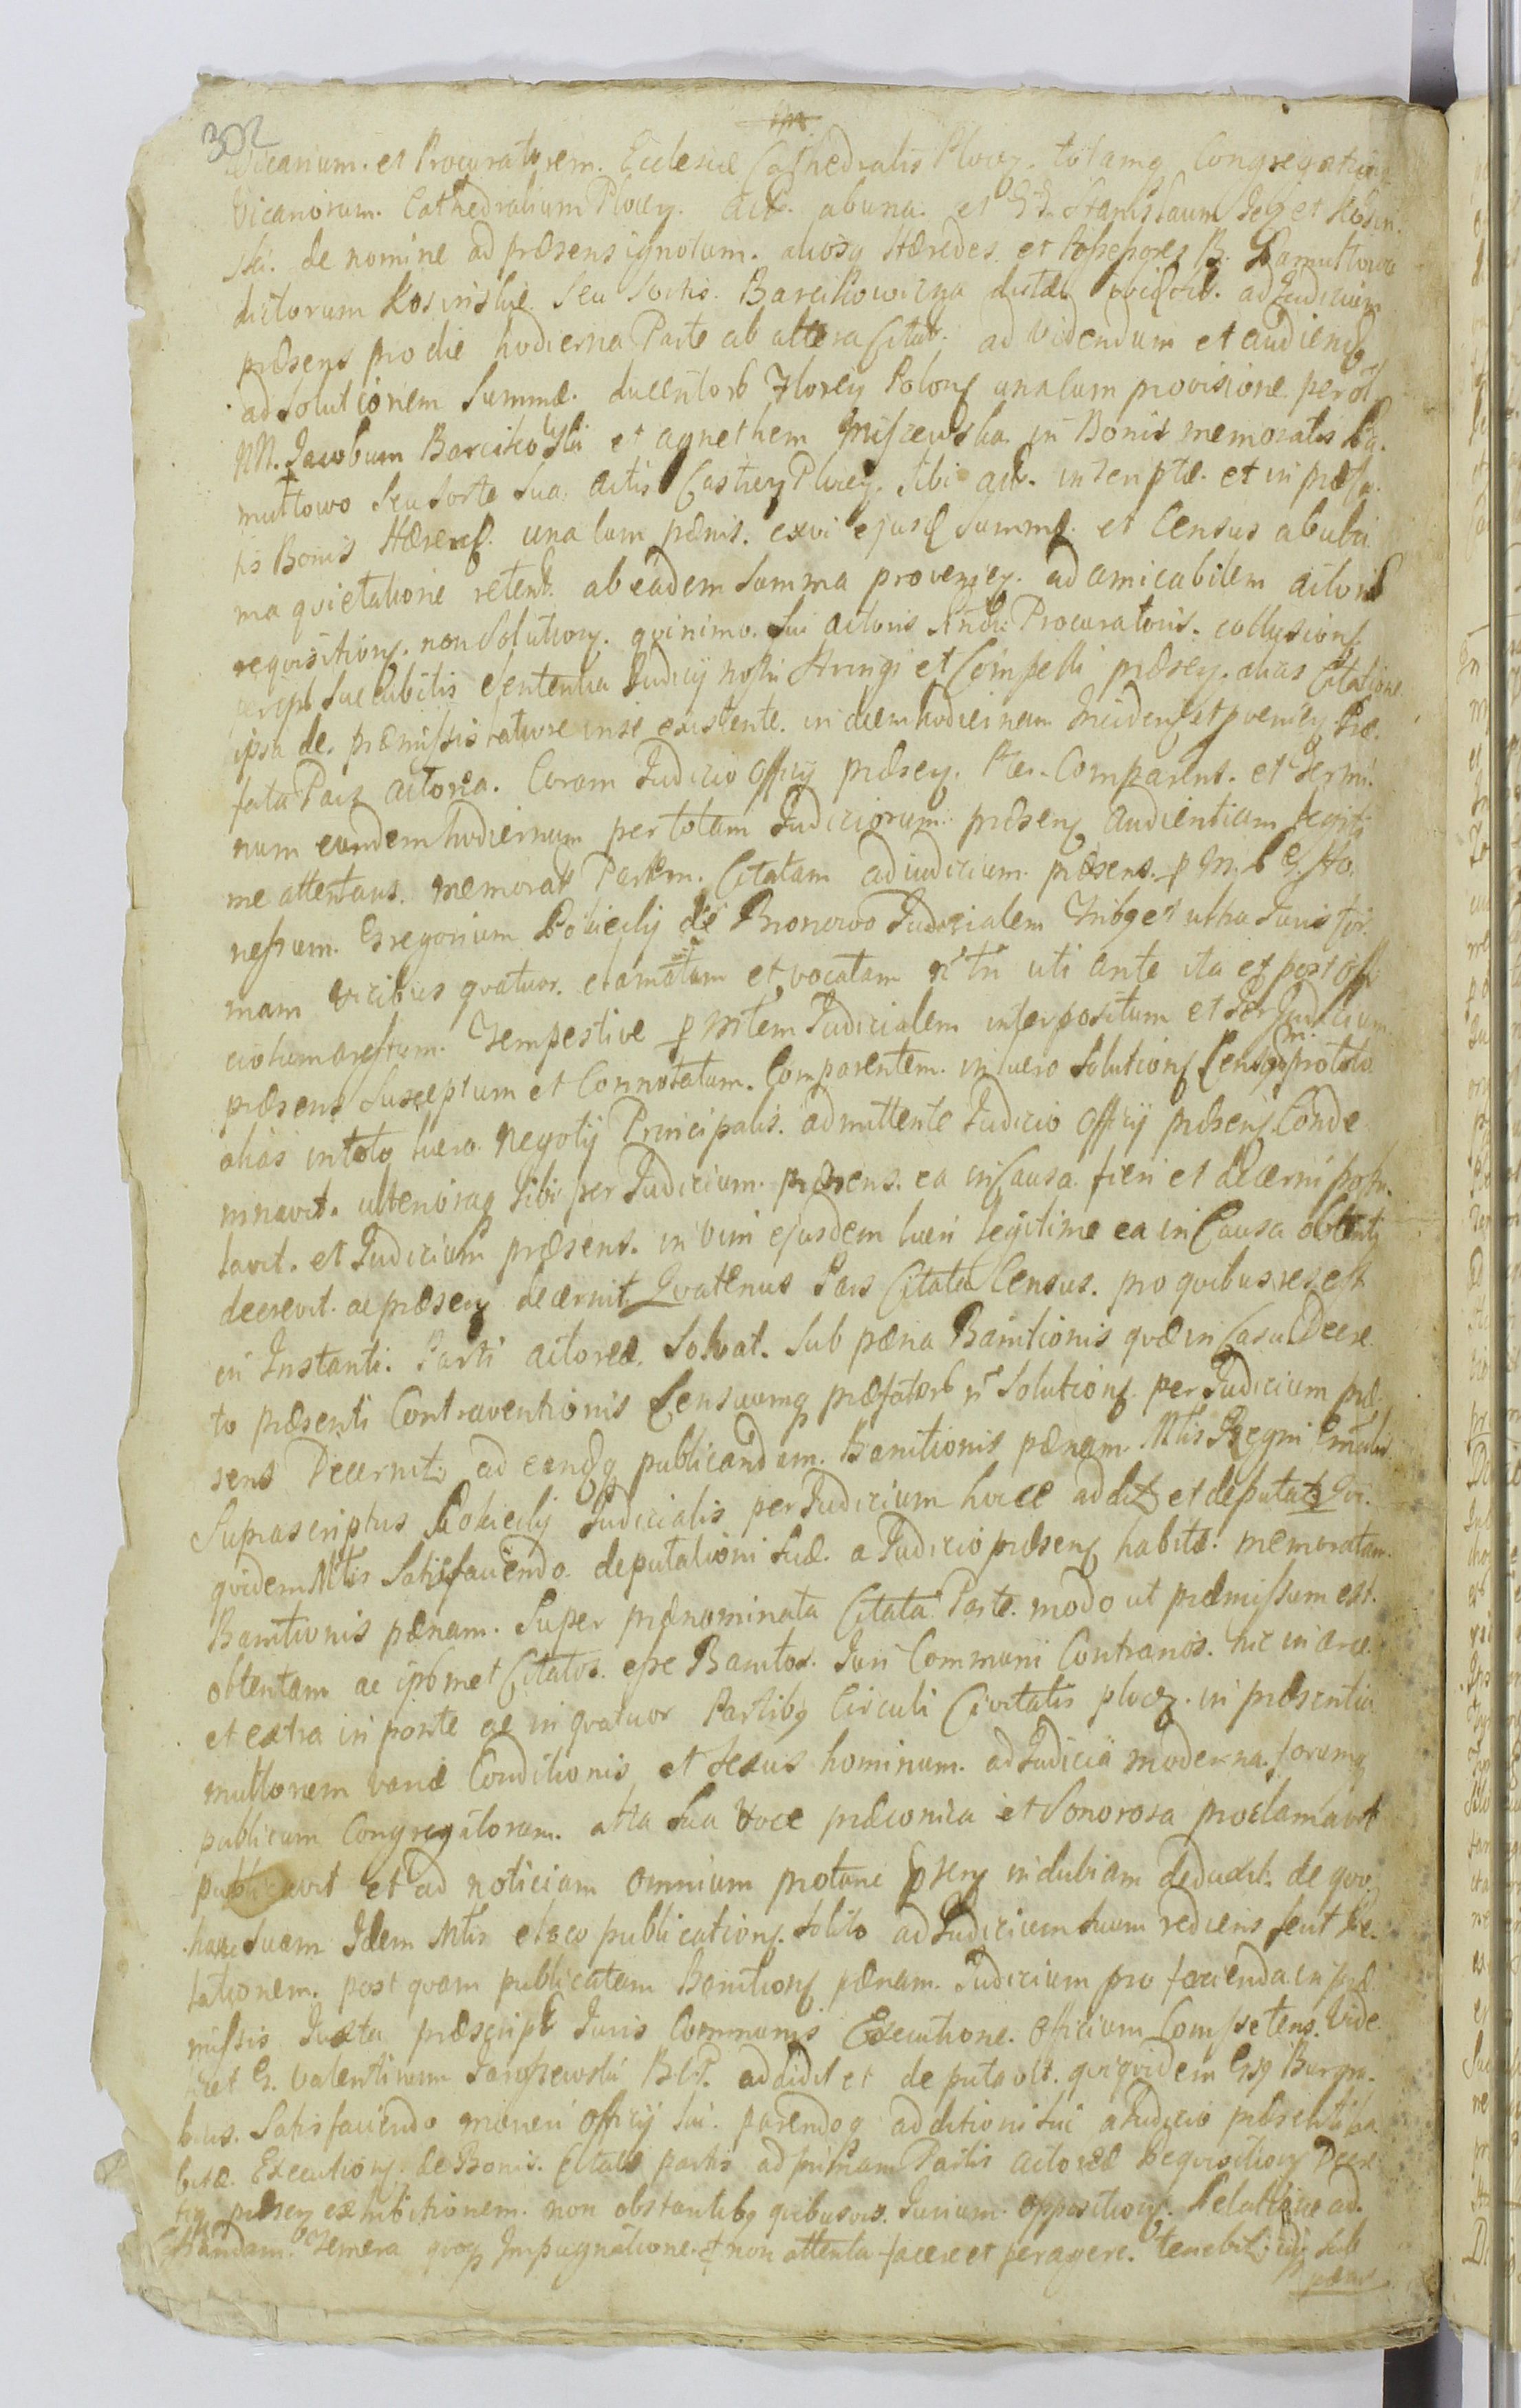 302
Vicarium. et Procuratorem. Ecclesiæ Cathedralis Plocz. totamq Congregation
Vicariorum. Cathedralium Plocz. act. ab una. et Stanislaum Jeg et Kosin
ski. de nomine ad præsens ignotum. aliosq Hæredes. et Possessores B. Ramuttowo
dictorum Kosinskie. Seu Sortis. Barcikowizna dictæ ad Judicium
præsens pro die hodierna Parte ab altera Citat. ad videndum et audiend
ad Solutionem Summæ. ducentorb Floreng Polong una cum provisione per ol.
NN. Jacobum Barcikoski et Agnethem Miszewska in Bonis memoratis Ra.
muttowo Seu Sorte Sua actis Castreng Plocen. Sibi act. inscriptæ. et in præfa
tis Bonis Hæreng. una cum pænis. ex vi ejusd Summæ. et Census ab ulti
ma qvietatione retent. ab eadem Summa provenieng. ad amicabilem actoris
requisitiong. non Solutiong. qvinimo. Sui actoris Procuratoris.
Sententia Judicij nostri Stringi et Compelli præseng. alias Citatione
ipsa de. præmissis latiore in se existente. in diem hodiernam Incideng et provenieng. Præ
fata Pars actorea. Coram Judicio Officij præseng. Pter. Comparens. et Termi.
num eundem hodiernum per totam Judiciorum præseng audientiam legiti
me attentans. memorat Partem. Citatam ad iudicium præsens. p M. Ho.
nestum. Gregorium Pokicelij de Bronowo Judicialem Tribq et ultra Juris for
mam vicibus qvatuor. clamatam et vocatam nec tn uti ante ita et post Offi
cio hum arestum. Tempestive p Mtem Judicialem interpositum et per Judicium
præsens Susceptum et Connotatum. Comparentem. in lucro Solutiong Census pro toto
alias in toto lucro. negotij Principalis. admittente Judicio Officij præseng Conde
mnavit. ulterioraq Sibi per Judicium. præsens. ea in Causa fieri et decerni postu
lavit. et Judicium præsens. in vim ejusdem lucri legitime ea in Causa obtenti
decrevit. ac præseng decernit. Qvatenus Pars Citata Census. pro qvibus res est
in Instanti. Parti actoreæ Solvat. Sub pæna Banitionis qvæ in Casu Decre
to præsenti Contraventionis Censuumq præfatorb n Solutiong per Judicium præ
sens Decernit. ad eandq publicandam. Banitionis pænam. Mtis Regni Gnalis
Suprascriptus Pokicelij Judicialis per Judicium hocce addit et deputat. Qvi.
qvidem Mtis Satisfaciendo. deputationi Suæ. a Judicio præseng habitæ. memoratam.
Banitionis pænam. Super prænominata Citata Parte. modo ut præmissum est.
obtentam ac ipsomet Citatos. esse Banitos. Juri Communi Contrarios. hic in arce.
et extra in ponte ac in qvatuor Partibq Circuli Civitatis plocen. in præsentia
multorum variæ Conditionis et Sexus hominum. ad Judicia moderna. forumq
publicum Congregatorum. alta Sua voce præconica et Sonorosa proclamavit
publicavit et ad noticiam omnium protunc pseng indubiam deduxit. de qvo
hanc Suam Idem Mtis ex loco publicationg. Solito ad Judicium Suum rediens fecit Re-
lationem. post qvam publicatam Banitiong pænam. Judicium pro facienda in præ
missis Juxta præscript Juris Communis Executione. Officium Competens. Vide
licet G. Valentinum Janiszewski B.C.P. addidit et deputavit. qviqvidem Gsq Burgra-
bius. Satisfaciendo muneri Officij Sui. parendoq additioni Sui a Judicio præsenti ha
bitæ. Executiong. de Bonis. Citatæ partis ad primam Partis actoreæ Reqvisitiong Decre
tiq præseng exhibitionem. non obstantibq qvibusvis. Jurium. oppositiong. Relatione ad.
Temera qvoq Impugnatione. non attenta facere et peragere. tenebit. idq Sub
pænis